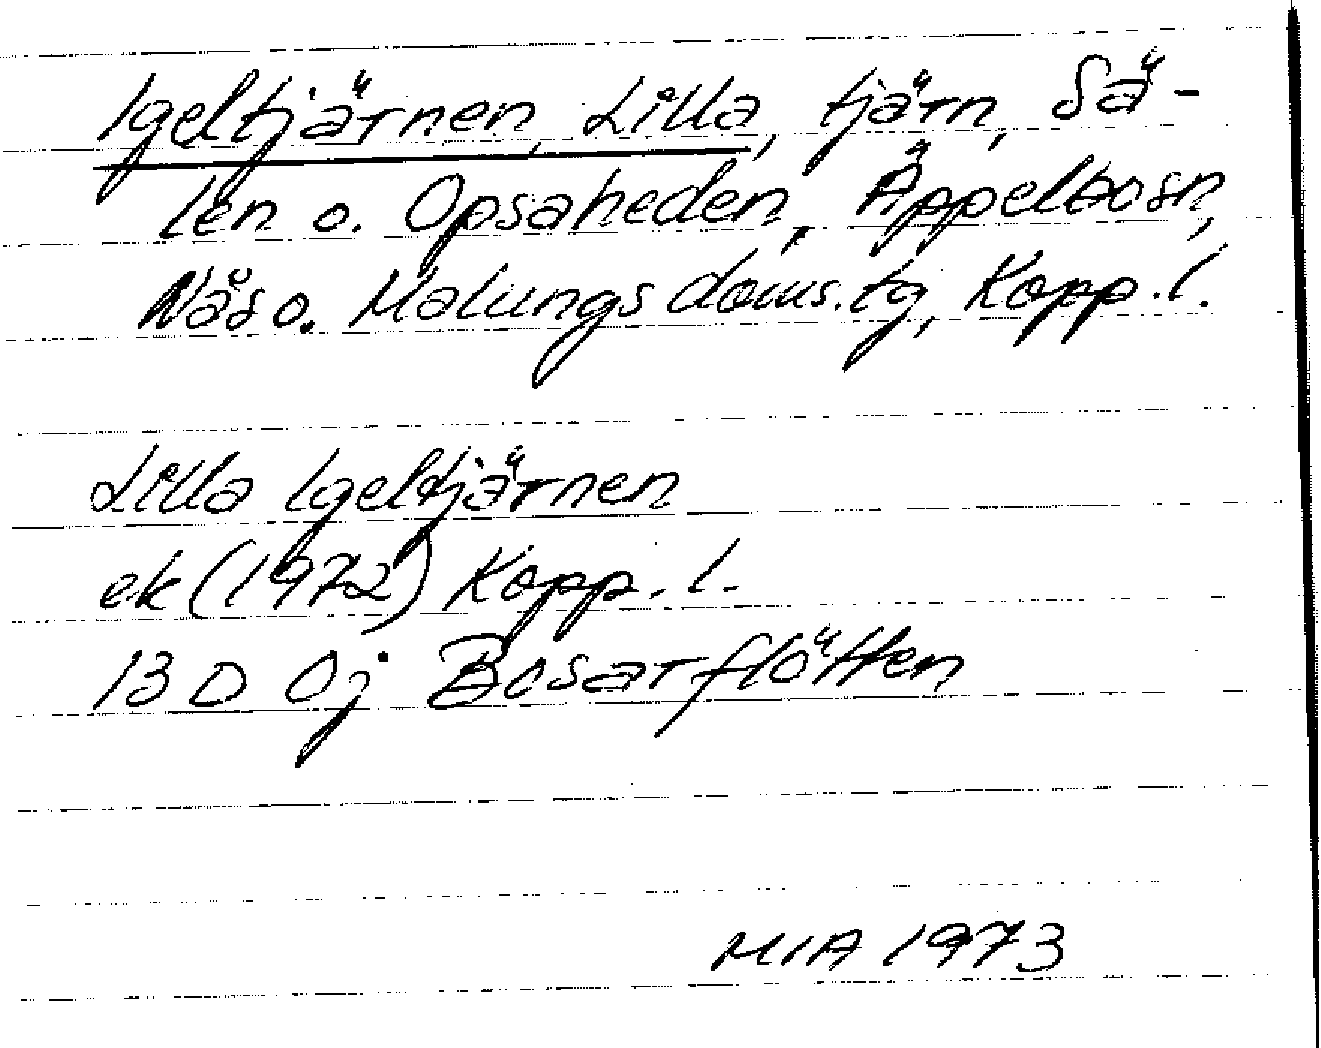 Igeltjärnen, Lilla, tjärn, Sä-
len o. Opsaheden, Äppelbosn,
Näs o. Malungs doms.tg, Kopp.l.
Lilla Igeltjärnen
ek (1972) Kopp. l.
13 D 0j Bosarflötten
MIA 1973